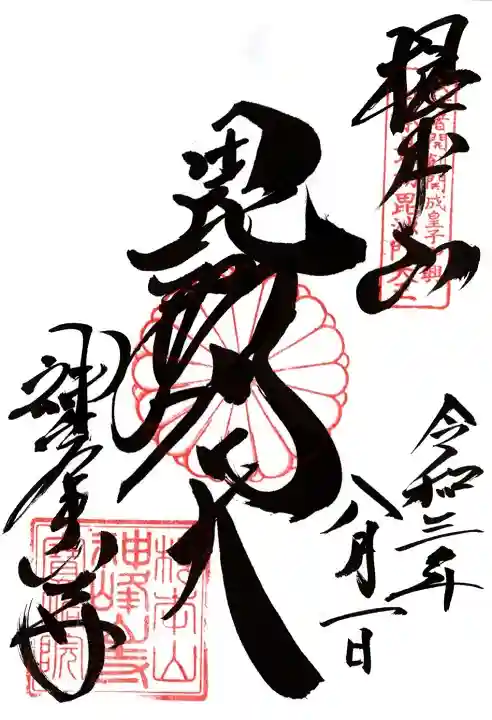 根本山
開創開成皇子中興
毘沙門天
令和三年
八月一日
神峯山寺
根本山
神峰山寺